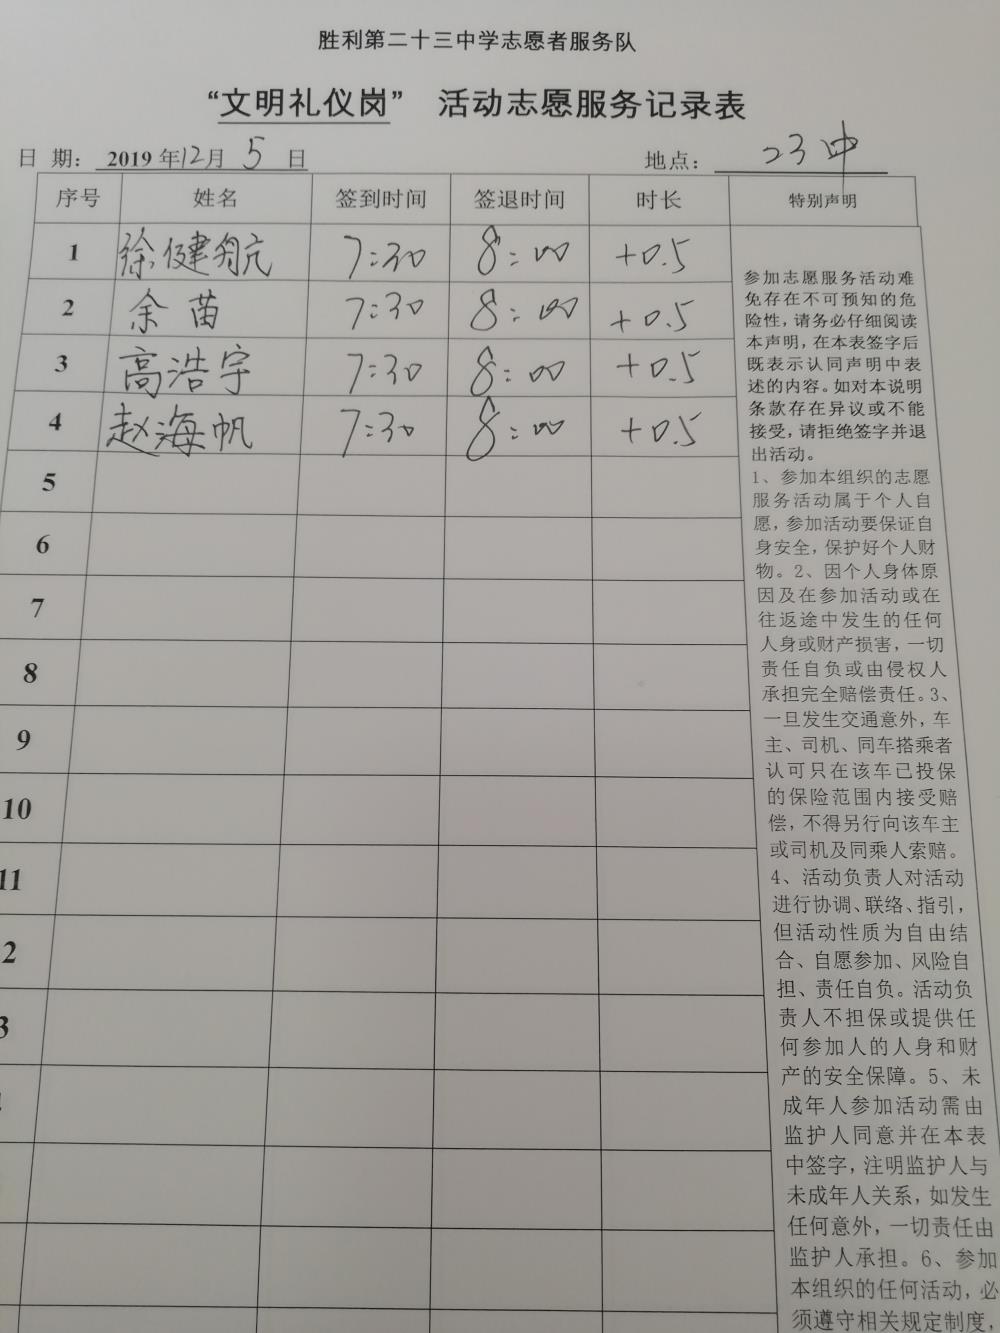 胜利第二十三中学志愿者服务队
“文明礼仪岗” 活动志愿服务记录表
日 期: 2019年12月5日 地点: 23中
序号 姓名 签到时间 签退时间 时长 特别声明
1 徐健航 7:30 8:00 +0.5
2 余苗 7:30 8:00 +0.5
3 高浩宇 7:30 8:00 +0.5
4 赵海帆 7:30 8:00 +0.5
5
6
7
8
9
10
11
2
3
参加志愿服务活动难
免存在不可预知的危
险性,请务必仔细阅读
本声明,在本表签字后
既表示认同声明中表
述的内容。如对本说明
条款存在异议或不能
接受,请拒绝签字并退
出活动。
1、参加本组织的志愿
服务活动属于个人自
愿,参加活动要保证自
身安全,保护好个人财
物。2、因个人身体原
因及在参加活动或在
往返途中发生的任何
人身或财产损害,一切
责任自负或由侵权人
承担完全赔偿责任。3、
一旦发生交通意外,车
主、司机、同车搭乘者
认可只在该车已投保
的保险范围内接受赔
偿,不得另行向该车主
或司机及同乘人索赔。
4、活动负责人对活动
进行协调、联络、指引,
但活动性质为自由结
合、自愿参加、风险自
担、责任自负。活动负
责人不担保或提供任
何参加人的人身和财
产的安全保障。5、未
成年人参加活动需由
监护人同意并在本表
中签字,注明监护人与
未成年人关系,如发生
任何意外,一切责任由
监护人承担。6、参加
本组织的任何活动,必
须遵守相关规定制度,